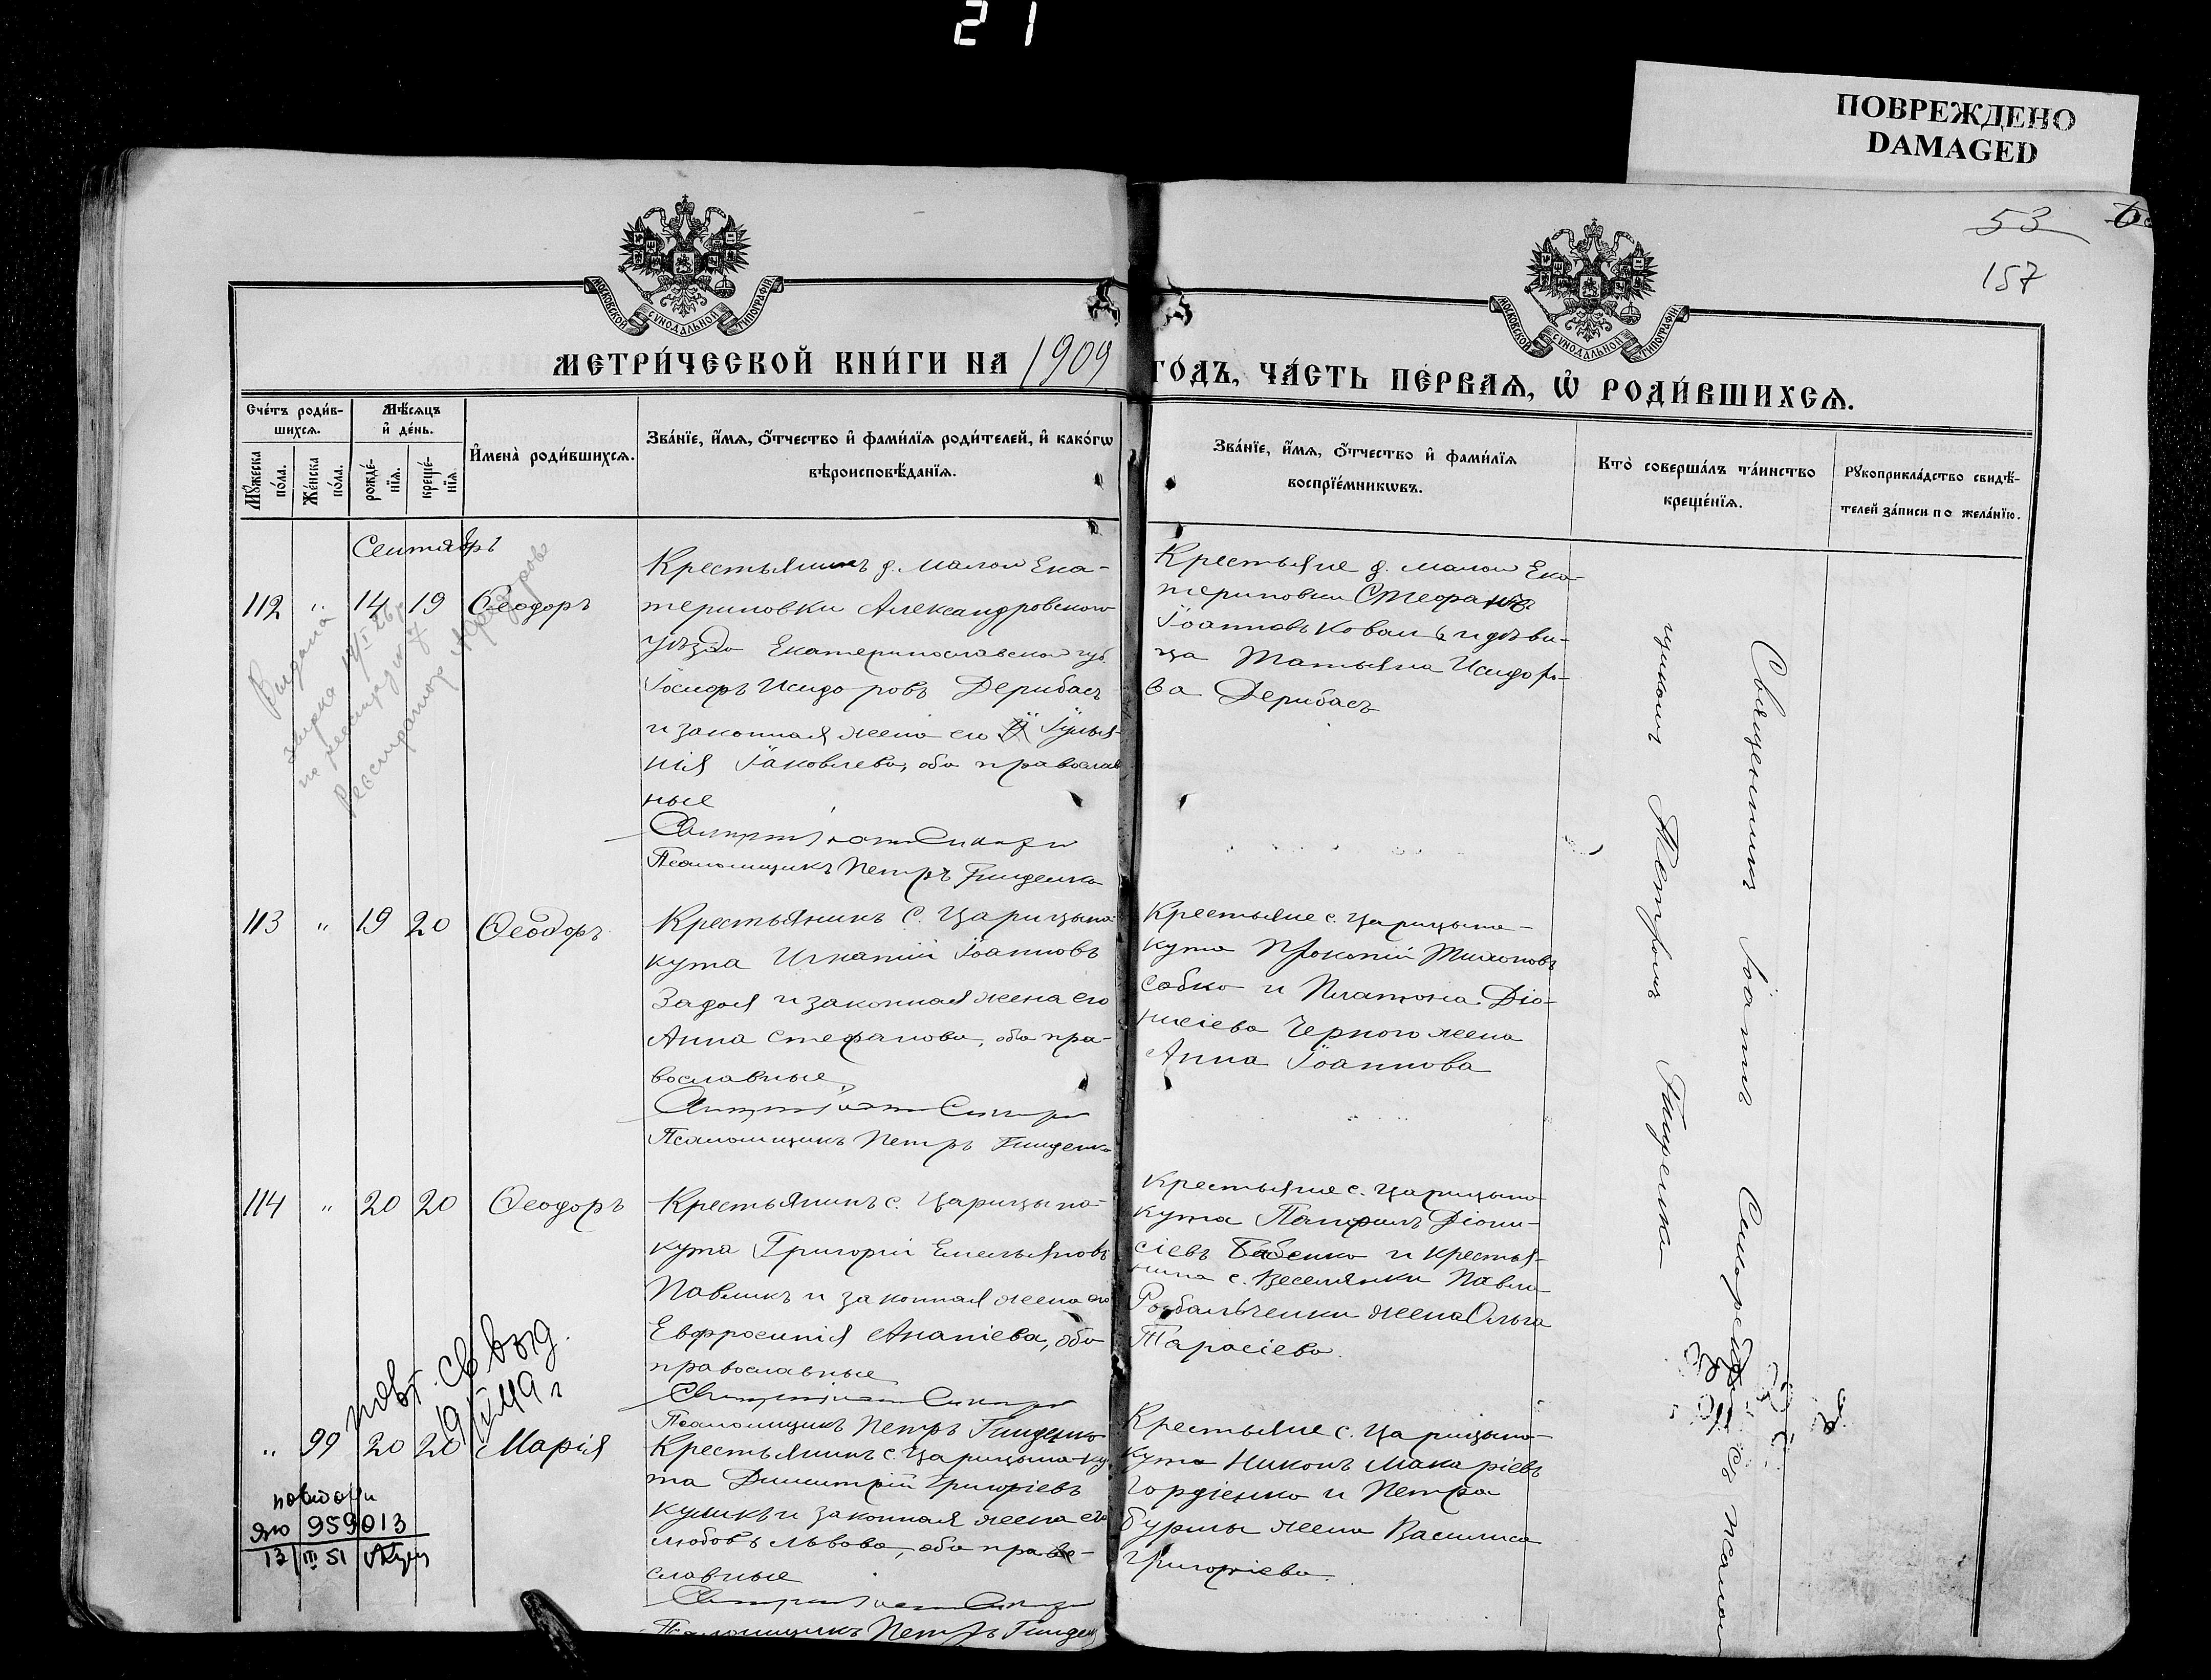 21
ПОВРЕЖДЕНО
DAMAGED
53
157
МОСКОВСКОЙ СѴНОДАЛЬНОЙ ТИПОГРАФІИ
МОСКОВСКОЙ СѴНОДАЛЬНОЙ ТИПОГРАФІИ
МЕТРИ́ЧЕСКОЙ КНИ́ГИ НА 1909 ГО́ДЪ, ЧА́СТЬ ПЕ́РВАѦ, Ѡ҆ РОДИ́ВШИХСѦ.
Сче́тъ роди́в-
шихсѧ.
Мѣ́сѧцъ
и҆ де́нь.
Мꙋ́жеска
по́ла.
Же́нска
по́ла.
рожде́-
нїѧ.
креще́-
нїѧ.
И҆мена̀ роди́вшихсѧ.
Зва́нїе, и҆́мѧ, ѻ҆́тчество и҆ фами́лїѧ роди́телей, и҆ како́гѡ
вѣроисповѣ́данїѧ.
Зва́нїе, и҆́мѧ, ѻ҆́тчество и҆ фами́лїѧ
воспрїе́мникѡвъ.
Кто̀ соверша́лъ та́инство
креще́нїѧ.
Рꙋкоприкла́дство свидѣ́-
телей за́писи по жела́нїю.
Сентябрь
112 " 14 19 Ѳеодоръ
Крестьянинъ д. Малой Ека-
териновки Александровского
уѣзда Екатеринославской губ
Исидоровъ Дерибасъ
и законная жена его Іуліа-
нія Іаковлева, оба православ
ные
Псаломщикъ Петръ Гниденко
Крестьяне д. Малой Ека-
териновки Стефанъ
Іоанновъ Коваль и дѣви-
ца Татьяна Исидоро-
ва Дерибасъ
Выдана
113 " 19 20 Ѳеодоръ
Крестьянинъ с. Царицына-
кута Игнатій Іоанновъ
Задоя и законная жена его
Анна Стефанова, оба пра-
вославные
Псаломщикъ Петръ Гниденко
Крестьяне с. Царицына-
кута Прокопій Тихоновъ
Собко и Платона Діо-
нисіева Черного жена
Анна Іоаннова
114 " 20 20 Ѳеодоръ
Крестьянинъ с. Царицына-
кута Григорій Емельяновъ
Павликъ и законная жена его
Евфросинія Ананіева, оба
православные
Псаломщикъ Петръ Гниденко
Крестьяне с. Царицына-
кута Памфилъ Діони-
сіевъ Бабенко и крестья-
нина с. Веселянки Павла
жена Ольга
Тарасіева.
повт. св выд.
" 99 20 20 Марія
Крестьянинъ с. Царицына-ку
та Димитрій Григоріевъ
Куликъ и законная жена его
Любовь Львова, оба право-
славные
Псаломщикъ Петръ Гниден
Крестьяне с. Царицына-
кута Никонъ Макаріевъ
Гордіенко и Петра
Бурлы жена Василиса
Григоріева.
яю 959013
13 III 51
Священникъ Іоаннъ съ псалом
щикомъ Петромъ Гниденко